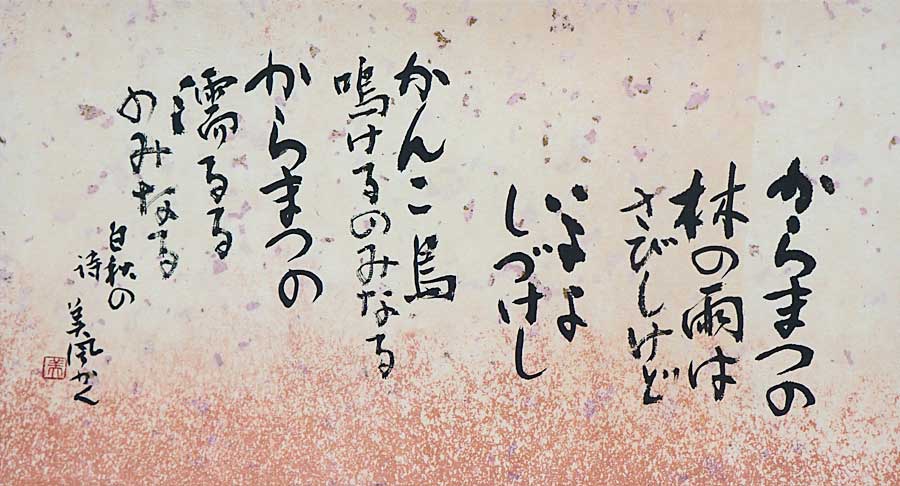 からまつの
林の雨は
さびしけど
いよよ
しづけし
かんこ鳥
鳴けるのみなる
からまつの
濡るる
のみなる
白秋の
詩
美風かく